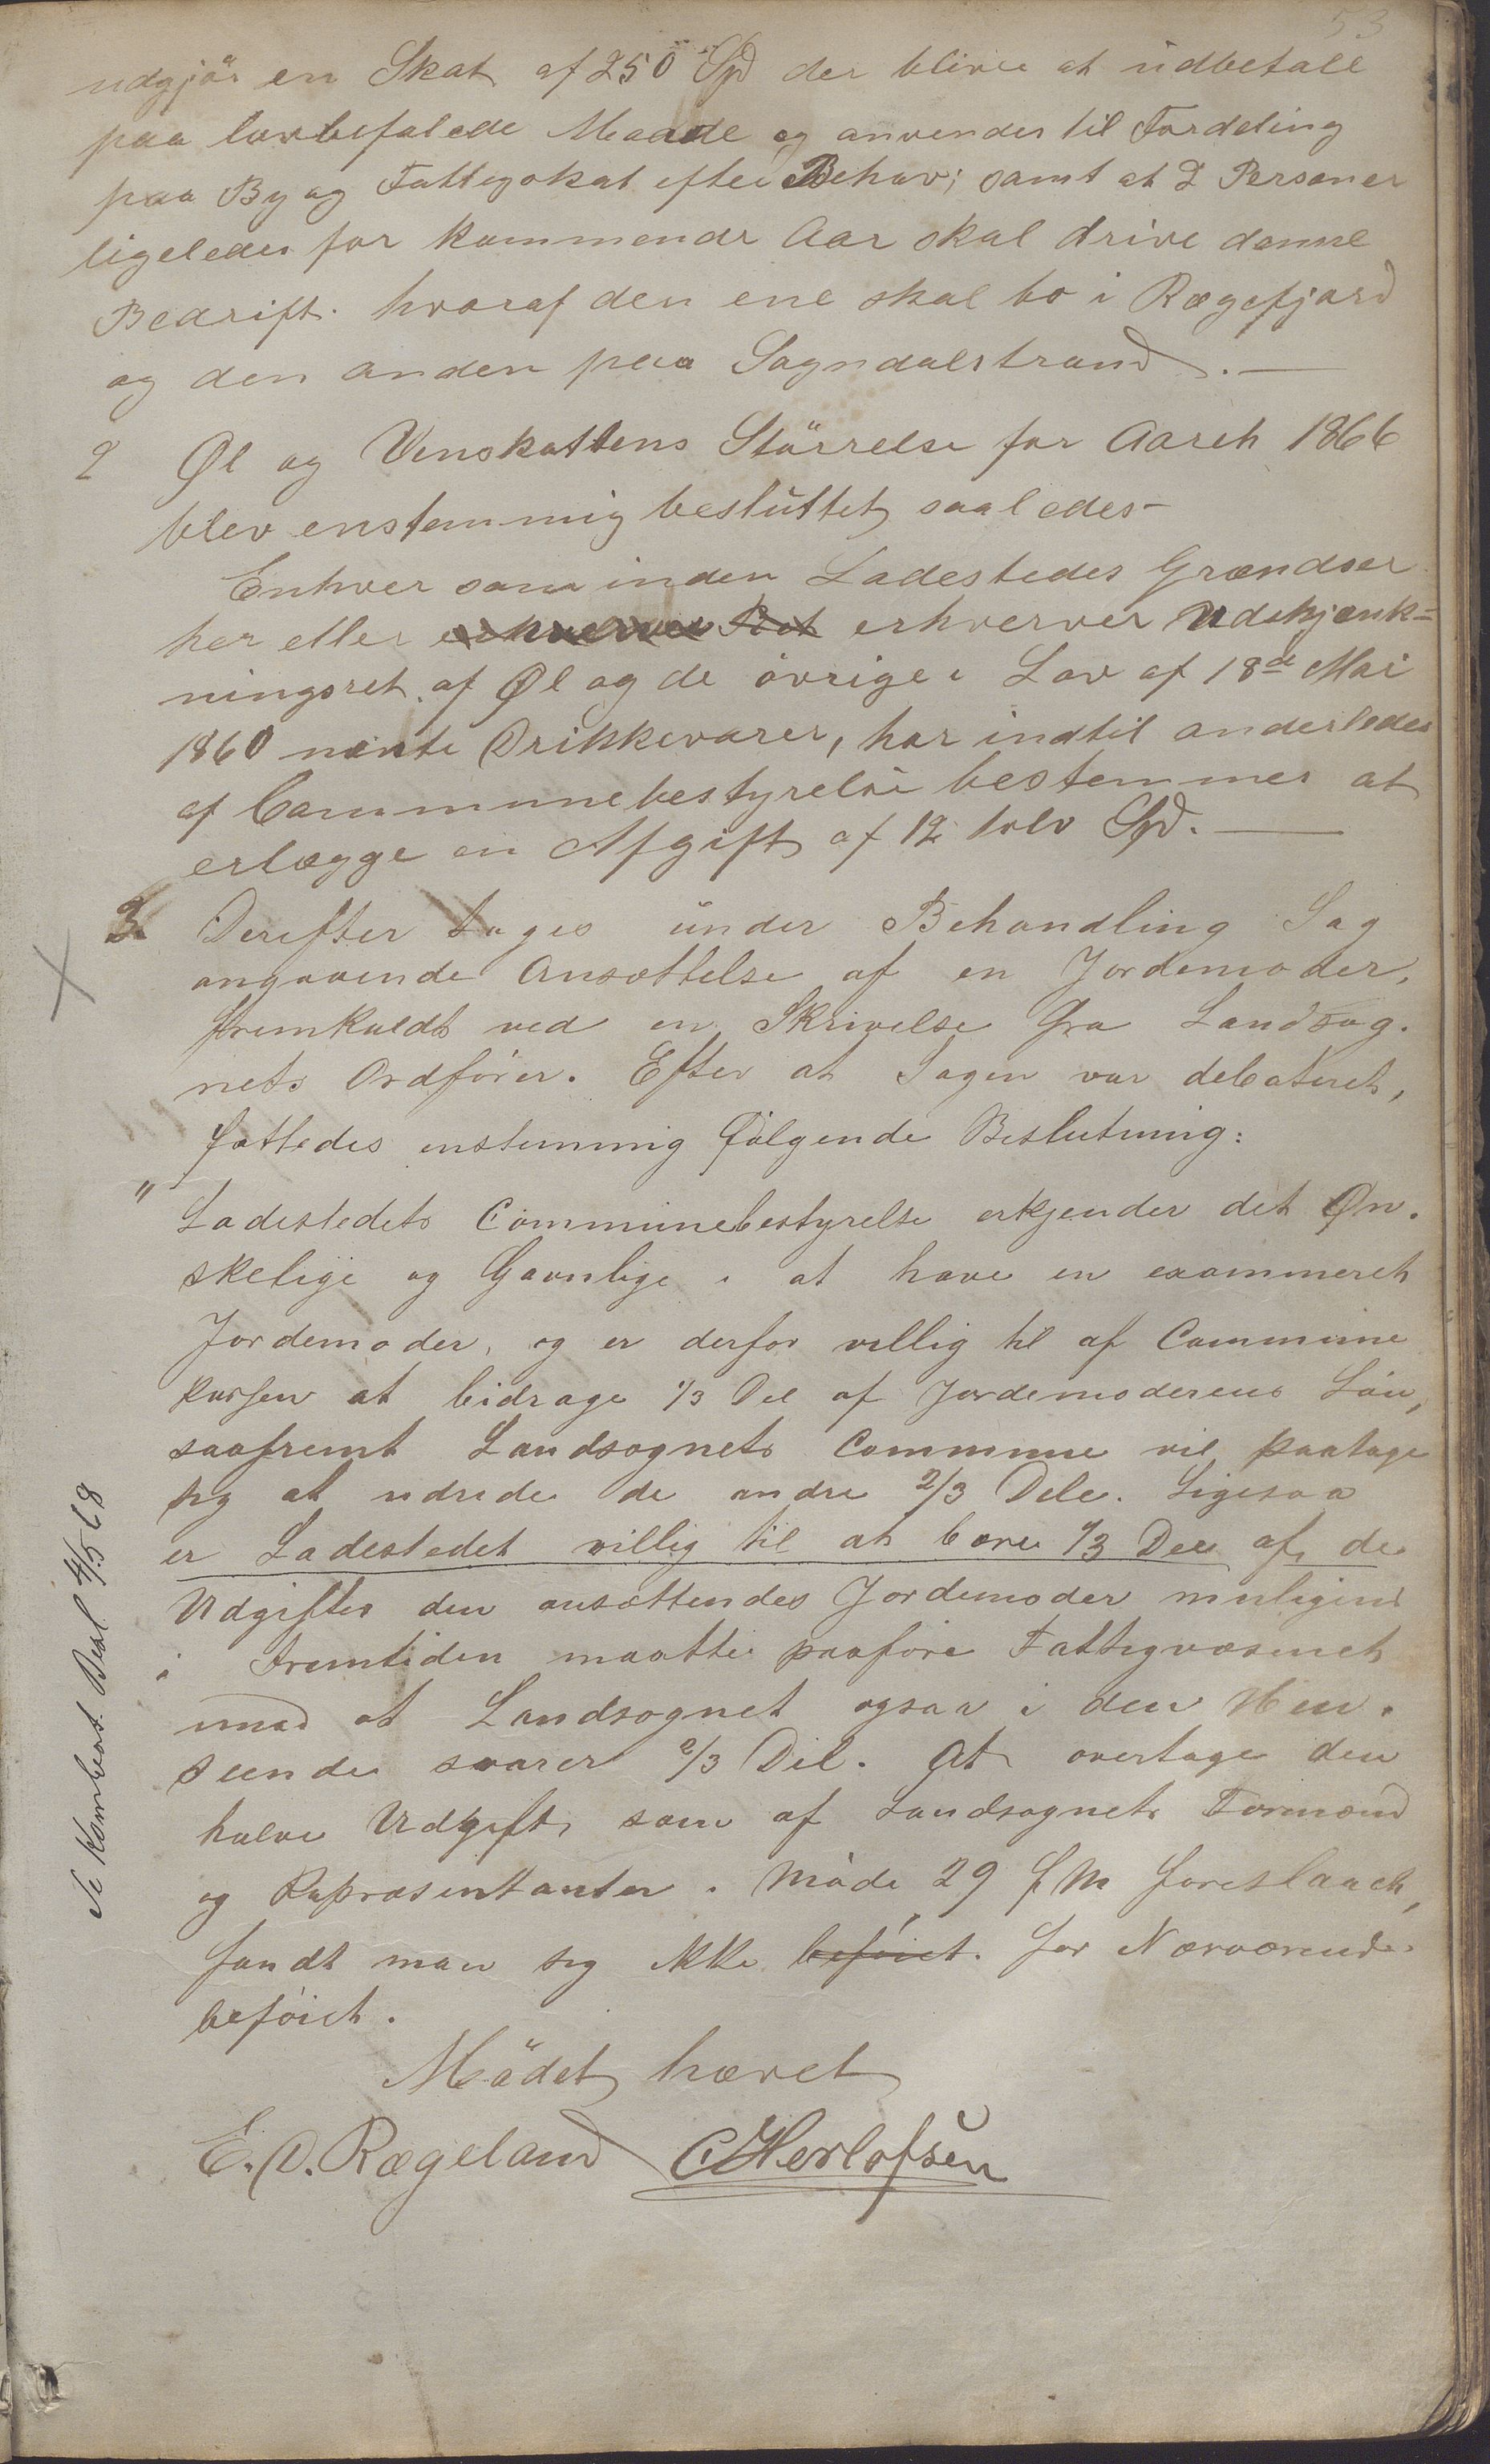 53
udgjör en Skat af 250 Spd der bliver at udbetale
paa lovbefalede Maade og anvendes til Fordeling
paa By og Fattigskat efter Behov; samt at 2 Personer
ligeledes for kommende Aar skal drive denne
Bedrift. hvoraf den ene skal bo i Rægefjord
og den anden paa Sogndalstrand. —
2 Øl og Vinskattens Störrelse for Aaret 1866
blev enstemmig besluttet saaledes—
Enhver som inden Ladestedes Grændser
har eller erhverver Ret erhverver Udskjænk=
ningsret af Øl og de övrige i Lov af 18de Mai
1860 nævnte Drikkevarer, har indtil anderledes
af Communebestyrelse bestemmes at
erlægge en Afgift af 12 tolv Spd. —
3. Derefter toges under Behandling Sag
angaaende Ansættelse af en Jordemoder,
fremkaldt ved en Skrivelse fra Landsog-
nets Ordförer. Efter at Sagen var debateret,
fattedes enstemmig følgende Beslutning:
" Ladestedets Communebestyrelse erkjender det Øn-
skelige og Gavnlige i at have en examineret
Jordemoder, og er derfor villig til af Commune
kassen at bidrage 1/3 Del af Jordemoderens Lön,
saafremt Landsognets Commune vil paatage
sig at udrede de andre 2/3 Dele. Ligesaa
er Ladestedet villig til at bære 1/3 Del af de
Udgifter den ansættendes Jordemoder muligens
i Fremtiden maatte paaföre Fattigvæsenet
imod at Landsognet ogsaa i den Hen-
seende svarer 2/3 Del. At overtage den
halve Udgift, som af Landsognets Formænd
og Repræsentanter i Möde 29 f M foreslaaet,
fandt man sig ikke beföiet. for Nærværende
beföiet.
Mödet hævet
E. O. Rægeland CHerlofsen
Se Kombest. Besl. 4/5 68